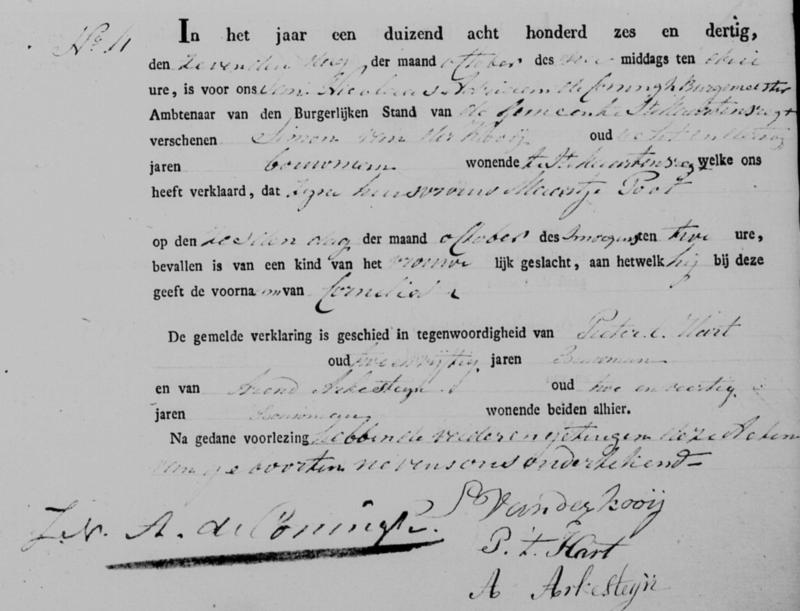 No 11
In het jaar een duizend acht honderd zes en dertig,
den zevenden dag der maand October des middags ten drie
ure, is voor ons Jan Nicolaas Adriaan de Coningh Burgemeester
Ambtenaar van den Burgerlijken Stand van de gemeente St Maartensregt
verschenen Simon van der Kooij oud acht en dertig
jaren bouwman wonende te St Maartensregt welke ons
heeft verklaard, dat zyne huisvrouw Maartje Poot
op den zesden dag der maand October des smorgens ten twee ure,
bevallen is van een kind van het vrouwe lijk geslacht, aan hetwelk hij bij deze
geeft de voorna m van Cornelia
De gemelde verklaring is geschied in tegenwoordigheid van Pieter 't Hart
oud twee en vijftig jaren Bouwman
en van Arend Arkesteyn oud twee en veertig
jaren Bouwman wonende beiden alhier.
Na gedane voorlezing hebbende vader en getuigen deze Acten
van geboorten nevens ons onderteekend
S Vanderkooij
J. N. A. de Coningh.
P. 't Hart
A Arkesteyn